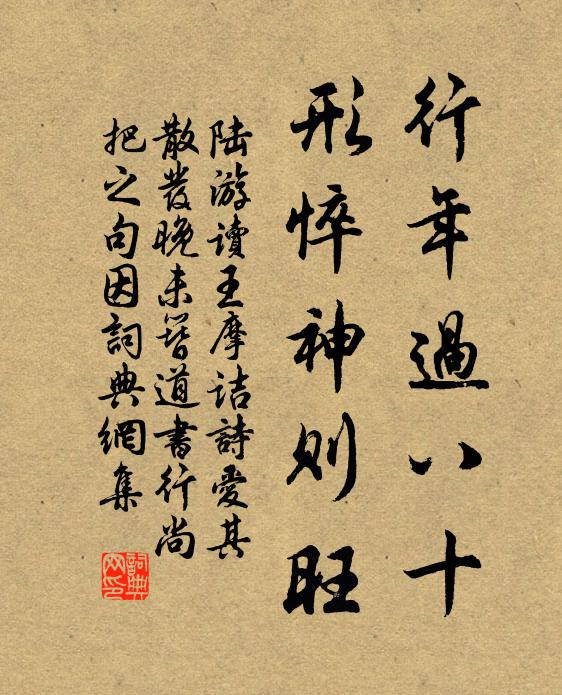 行年過八十
形悴神則旺
陸游讀王摩詰詩愛其
散發晚未簪道書行尚
把之句因詞典網集
詞典
网印